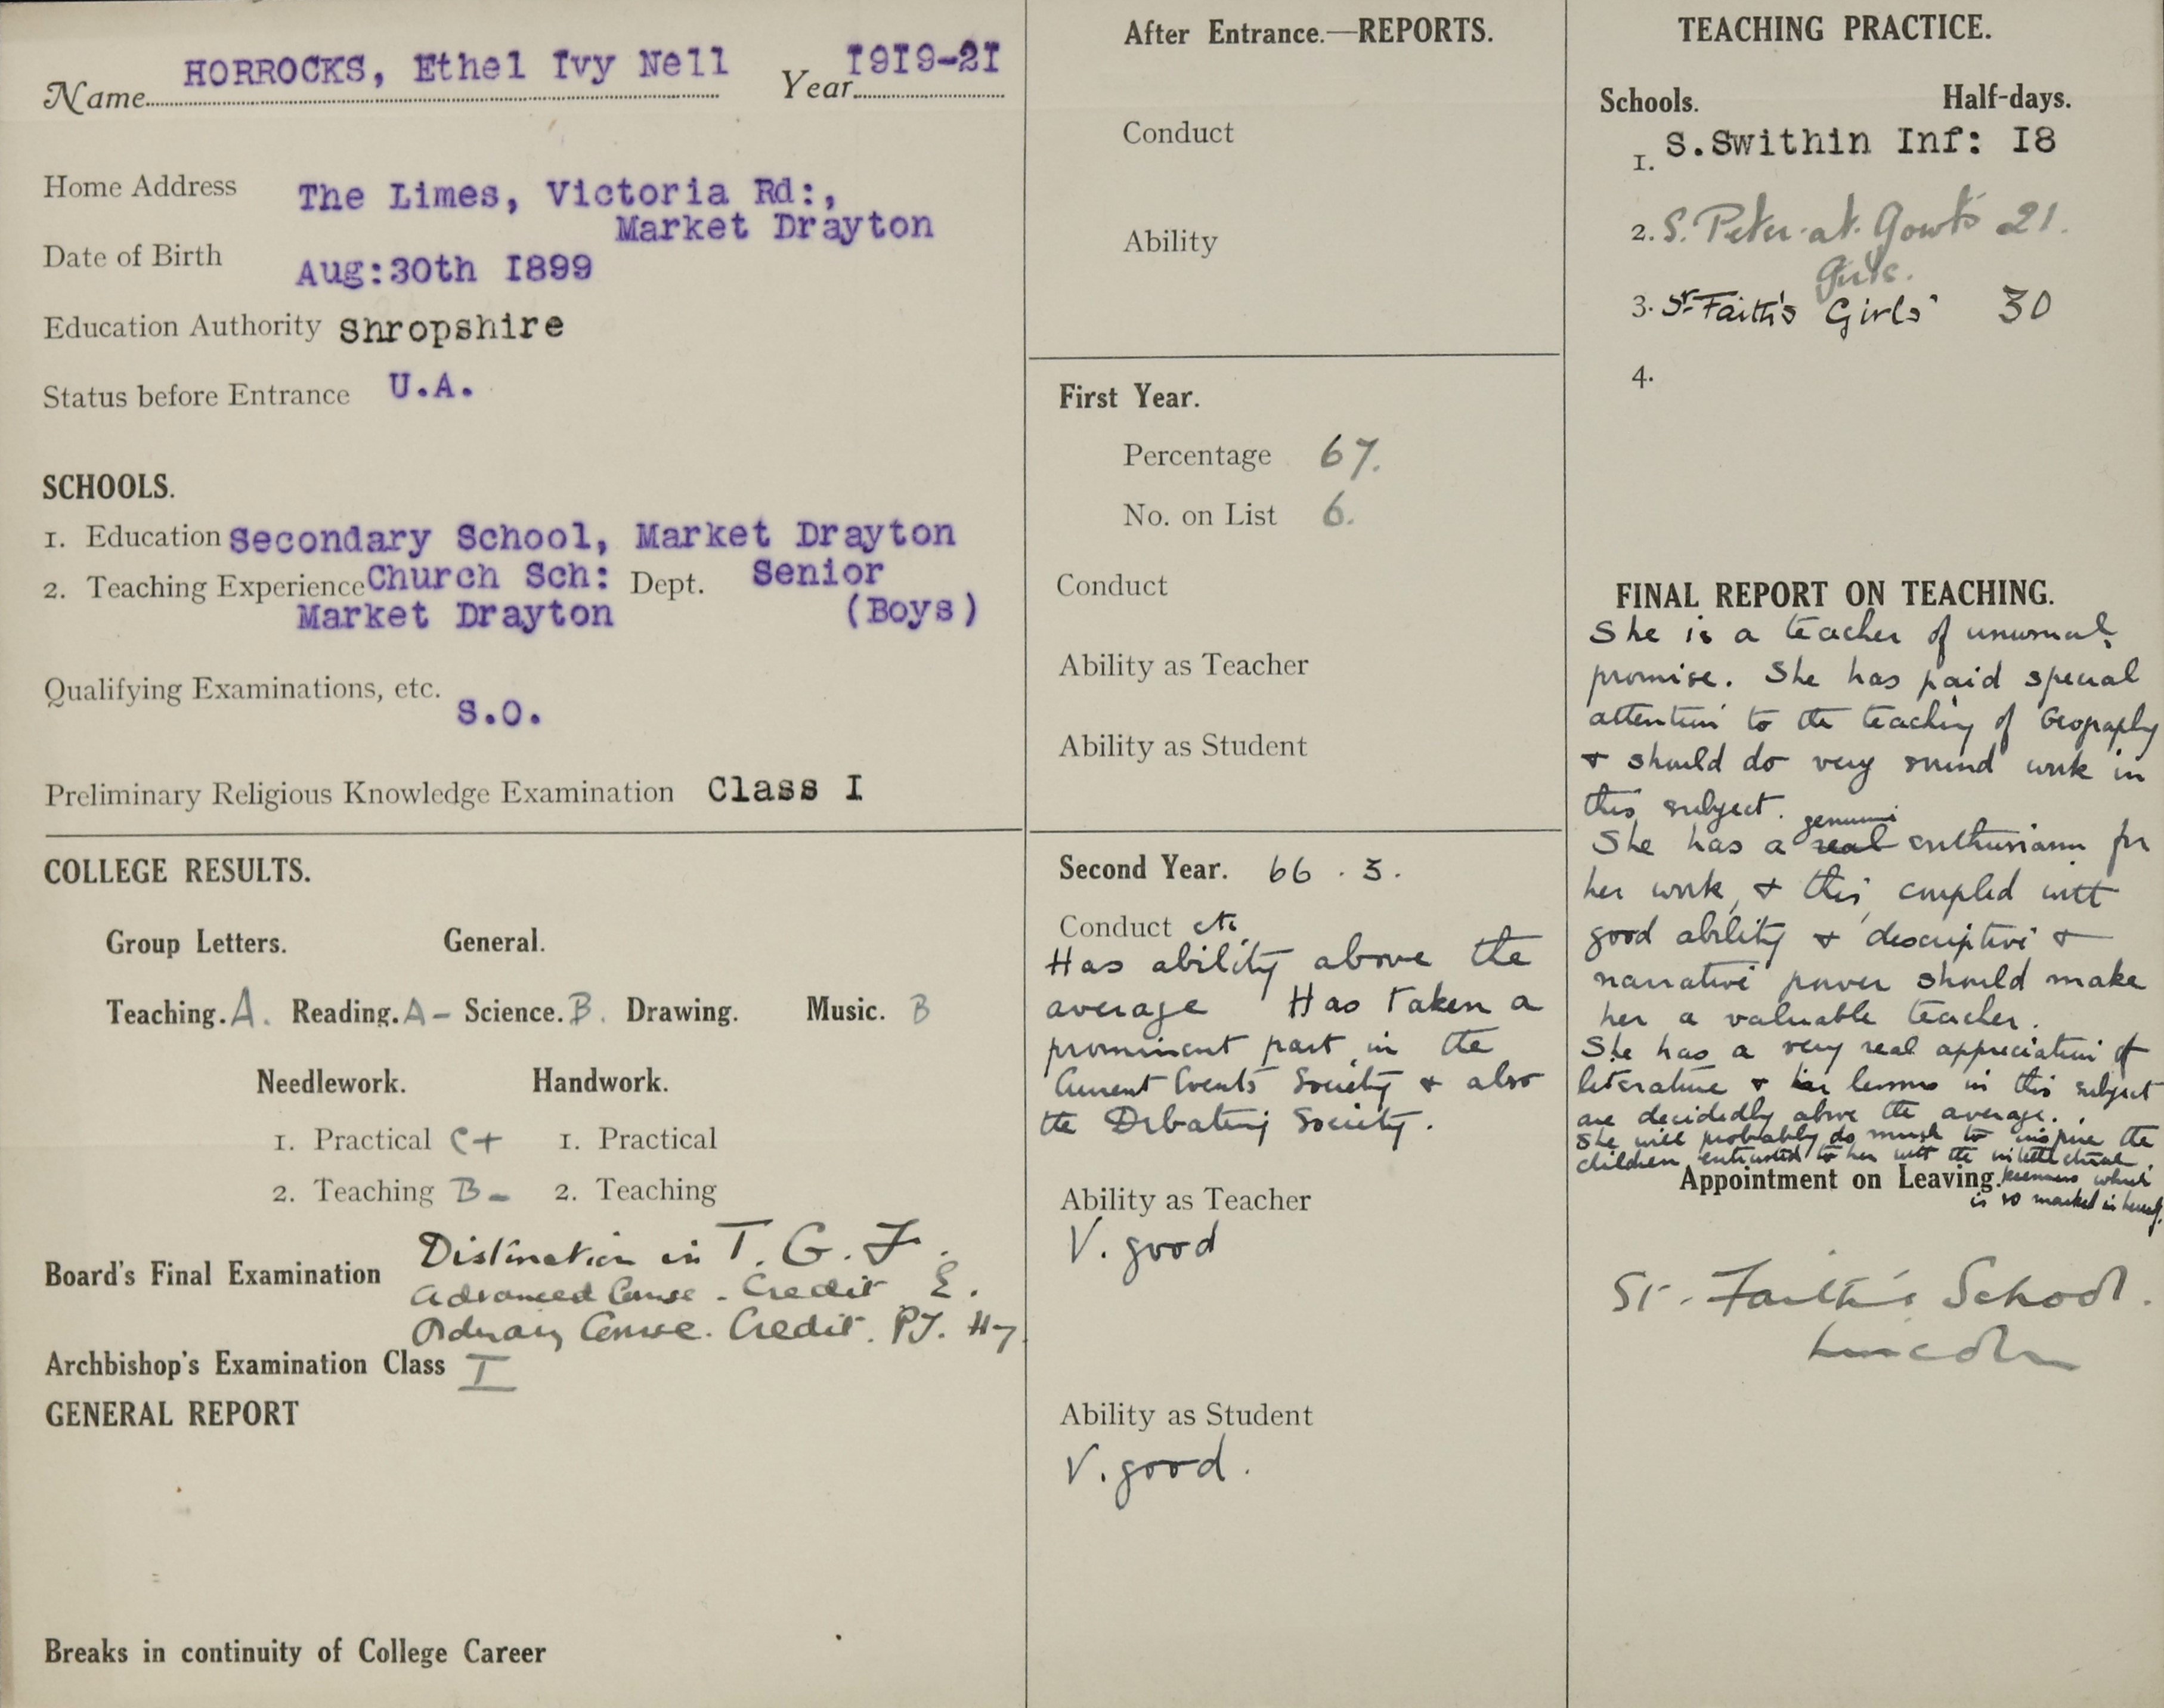 Name HORROCKS, Ethel Ivy Nell Year I9I9-2I
Home Address The Limes, Victoria Rd:,
Market Drayton
Date of Birth Aug:30th I899
Education Authority Shropshire
Status before Entrance U.A.
SCHOOLS.
1. Education Secondary School, Market Drayton
2. Teaching Experience Church Sch: Dept. Senior
Market Drayton (Boys)
Qualifying Examinations, etc.
S.O.
Preliminary Religious Knowledge Examination Class I
COLLEGE RESULTS.
Group Letters. General.
Teaching. A. Reading. A- Science. B. Drawing. Music. B
Needlework. Handwork.
1. Practical C+ 1. Practical
2. Teaching B- 2. Teaching
Board's Final Examination Distinction in T. G. F.
Advanced Course - Credit E.
Ordinary Course. Credit. PT. Hy.
Archbishop's Examination Class I
GENERAL REPORT
Breaks in continuity of College Career
After Entrance.—REPORTS.
Conduct
Ability
First Year.
Percentage 67.
No. on List 6.
Conduct
Ability as Teacher
Ability as Student
Second Year. 66 . 3.
Conduct etc.
Has ability above the
average Has taken a
prominent part in the
Current Events Society + also
the Debating Society.
Ability as Teacher
V. good
Ability as Student
V. good.
TEACHING PRACTICE.
Schools. Half-days.
1. S.Swithin Inf: I8
2. S. Peter-at-Gowts 21.
Girls.
3. St Faith's Girls' 30
4.
FINAL REPORT ON TEACHING.
She is a teacher of unusual
promise. She has paid special
attention to the teaching of Geography
+ should do very sound work in
this subject.
genuine
She has a real enthusiasm for
her work, + this, coupled with
good ability + descriptive +
narrative power should make
her a valuable teacher.
She has a very real appreciation of
literature + her lessons in this subject
are decidedly above the average.
She will probably do much to inspire the
children entrusted to her with the intellectual
Appointment on Leaving. keenness which
is so marked in herself.
St. Faith's School.
Lincoln